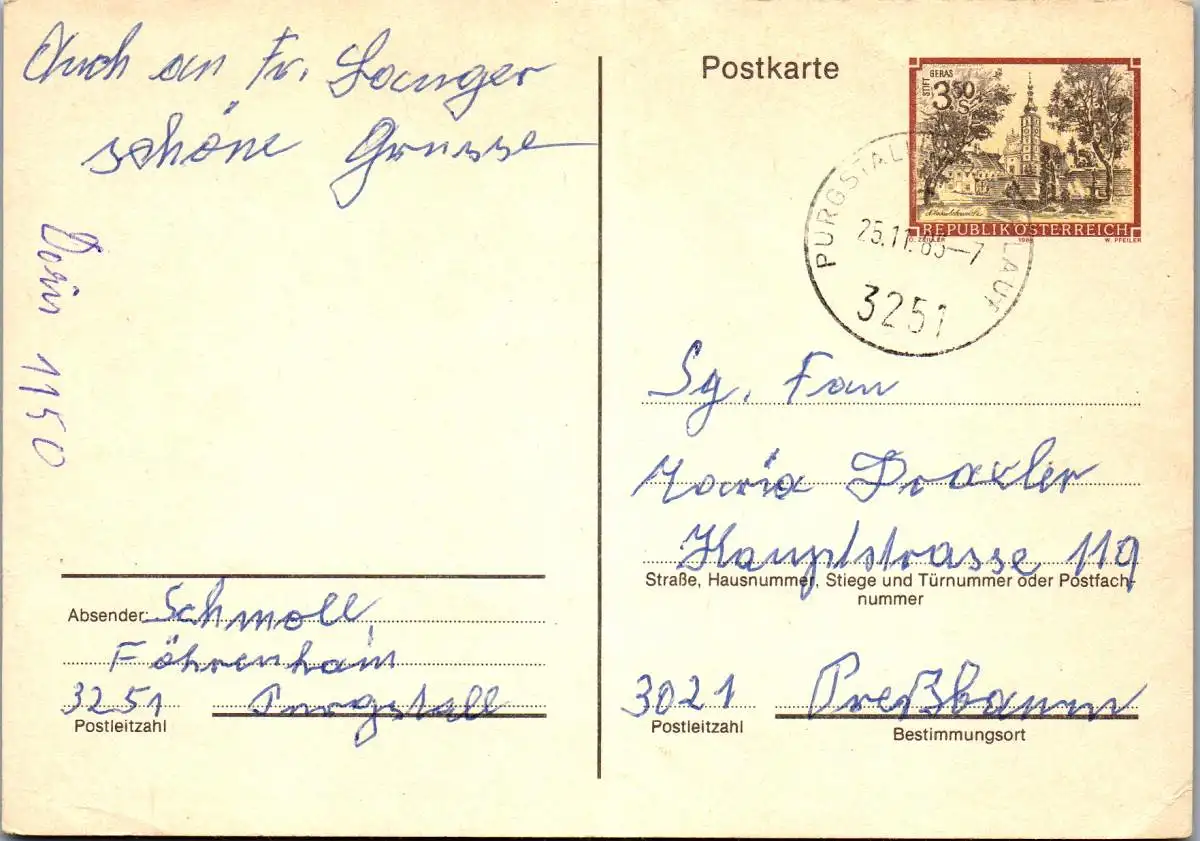 Auch an Fr. Langer
schöne Grüsse
1150
Absender: Schmoll,
Föhrenhain
3251 Purgstall
Postleitzahl
Postkarte
STIFT GERAS
3 50 S
REPUBLIK ÖSTERREICH
O. ZEILLER 198 W. PFEILER
PURGSTALL LAUF
25.11.85-7
3251
Sg. Frau
Maria Draxler
Hauptstrasse 119
Straße, Hausnummer, Stiege und Türnummer oder Postfach-
nummer
3021 Preßbaum
Postleitzahl Bestimmungsort